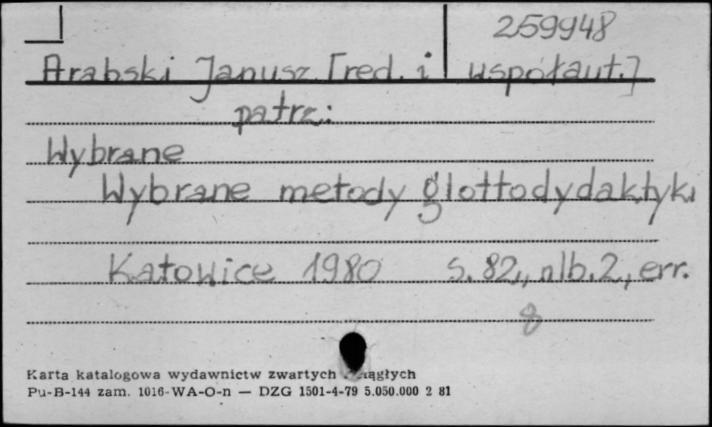 259948
Arabski Janusz [red. i współaut.]
patrz:
Wybrane
Wybrane metody glottodydaktyki
Katowice 1980 s. 82, nlb. 2, err.
8
Karta katalogowa wydawnictw zwartych
Pu-B-144 zam. 1016-WA-O-n — DZG 1501-4-79 5.050.000 2 81